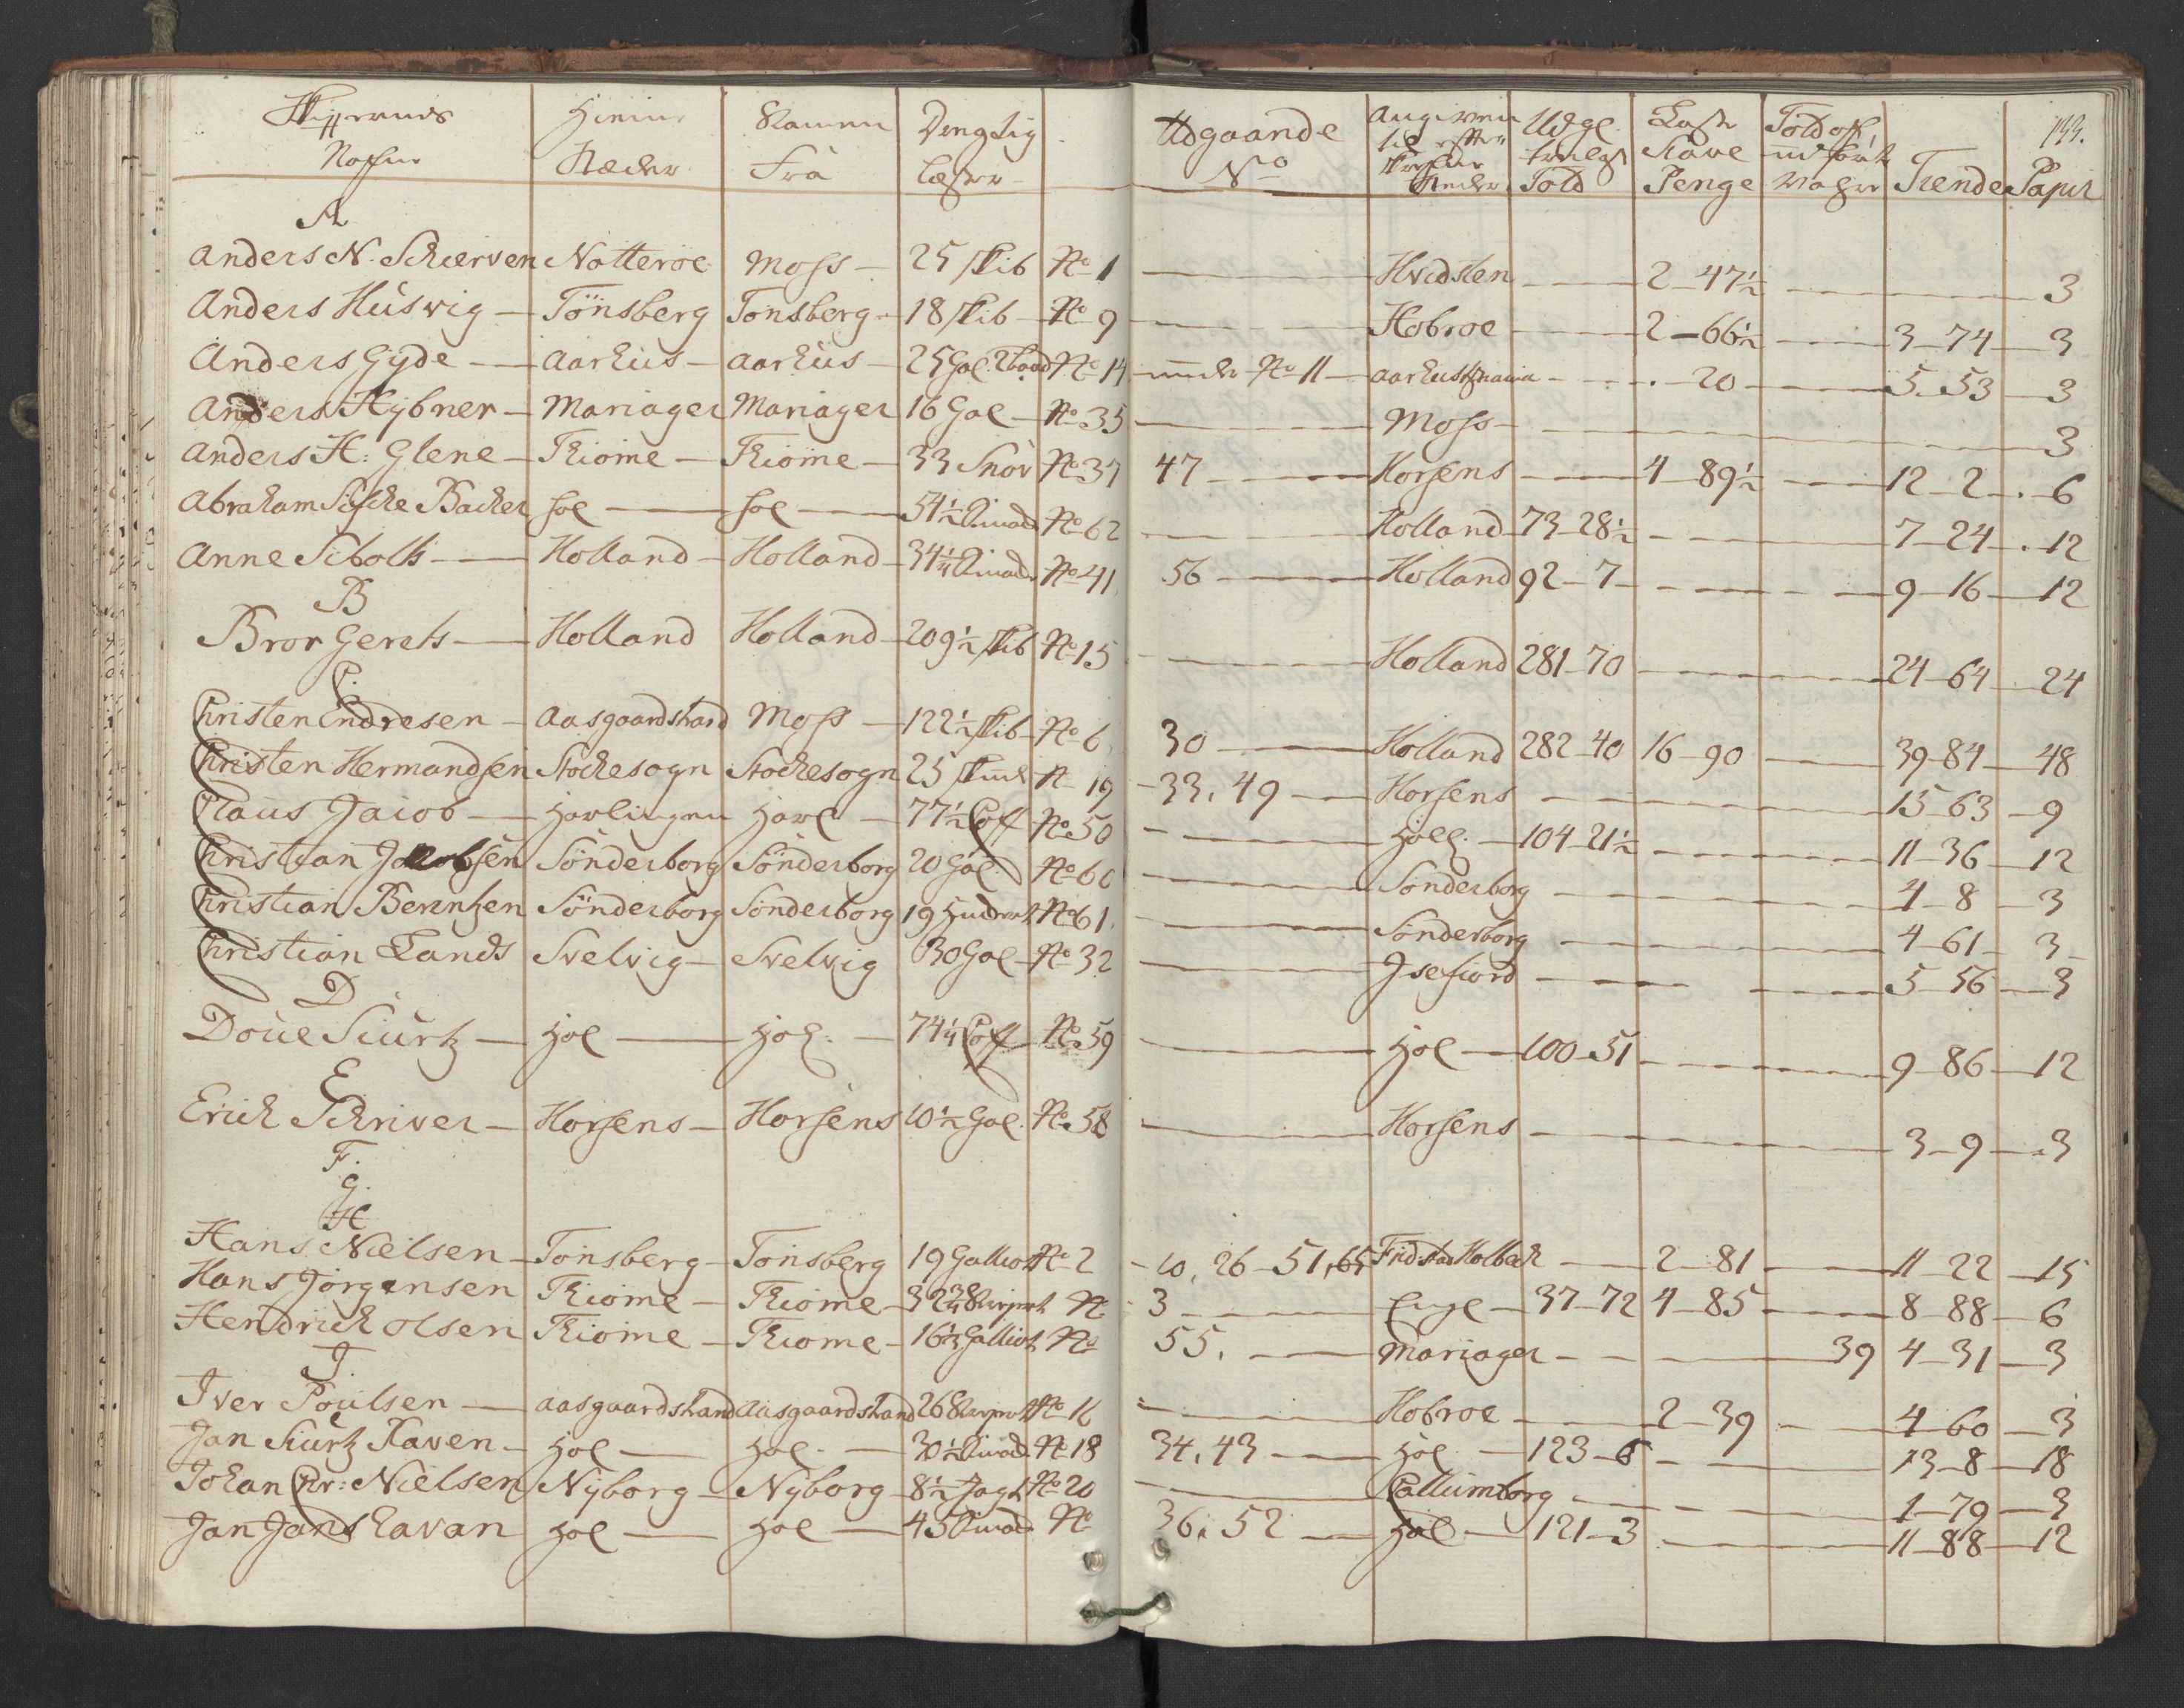 133.
Skippernes Nafne | Hiem Stæder | Kommen Fra | Drægtig Læster | Udgaaende No | Angiven til Stæder | Udg. Told | Last Penge | Told | Tiende | Papir
A
Anders N. Schiersen Nötteröe Moss — 25 Skib No 1 — Hvidsten — 2 - 47½ — 3
Anders Husvig — Tönsberg Tönsberg — 18 Skib — No 9 — Hobroe — 2 - 66½ — 3 - 74 — 3
Anders Gyde — Aarhus — Aarhus — 25 Gal. No 14 — under No 11 — Aarhus — 20 — 5 - 53 — 3
Anders Hybner — Mariager Mariager 16 Gal — No 35 — Moss — 3
Anders H: Glene — Tkiöme — Tkiöme — 33 Snov No 37 47 — Horsens — 4 - 89½ — 12 - 2 - 6
Abraham Backer hol — hol — 51½ Smack No 62 — Holland 73 - 28½ — 7 - 24 - 12
Anne Sibolts — Holland — Holland — 34¼ Smack No 41 56 — Holland 92 - 7 — 9 - 16 — 12
B
Bror Gerets — Holland Holland — 209½ Skib No 15 — Holland 281 - 70 — 24 - 64 — 24
C.
Christen Endresen — Aasgaardstrand Moss — 122½ Skib — No 6 30 — Holland 282 - 40 16 - 90 — 39 - 84 — 48
Christen Hermandsen Stochesogn Stochesogn 25 No 19 33, 49 — Horsens — 15 - 63 - 9
Claus Jacob — Harlingen Harl — 77½ Coff No 50 — Holl. — 104 - 21½ — 11 - 36 — 12
Christian Jacobsen Sönderborg Sönderborg 20 Gal. No 60 — Sönderborg — 4 - 8 — 3
Christian Berentzen Sönderborg Sönderborg 19 No 61. — Sönderborg — 4 - 61 - 3
Christian Lands Svelvig — Svelvig 30 Gal — No 32 — Isefiord — 5 - 56 — 3
D
Doue Siurtz — Hol — Hol. — 74¼ Coff — No 59 — Hol — 100 - 51 — 9 - 86 — 12
E
Erich Schriver — Horsens — Horsens 10½ Gal. No 58 — Horsens — 3 - 9 — 3
F.
G.
H
Hans Nielsen — Tönsberg — Tönsberg 19 Galliot No 2 — 10, 26 - 51, 65 Frid:stad Holbech — 2 - 81 — 11 - 22 — 15
Hans Jörgensen Tkiöme — Tkiöme — 32¾ No 3 — Engl — 37 - 72 4 - 85 — 8 - 88 — 6
Hendrich Olsen Tkiöme — Tkiöme — 16½ Galliot No 55. — Mariager — 39 4 - 31 — 3
J
Iver Poulsen — Aasgaardstrand Aasgaardstrand 26 No 16 — Hobroe — 2 - 39 — 4 - 60 — 3
Jan Siurtz Kaven — Hol — Hol — 30½ Smack No 18 34, 43 — Hol — 123 - 6 — 13 - 8 — 18
Johan Chr: Nielsen Nyborg — Nyborg — 8½ Jagt No 20 — Callumborg — 1 - 79 — 3
Jan Jans Kavan Hol — Hol — 45 Smack No 36, 52 — Hol — 121 - 3 — 11 - 88 — 12